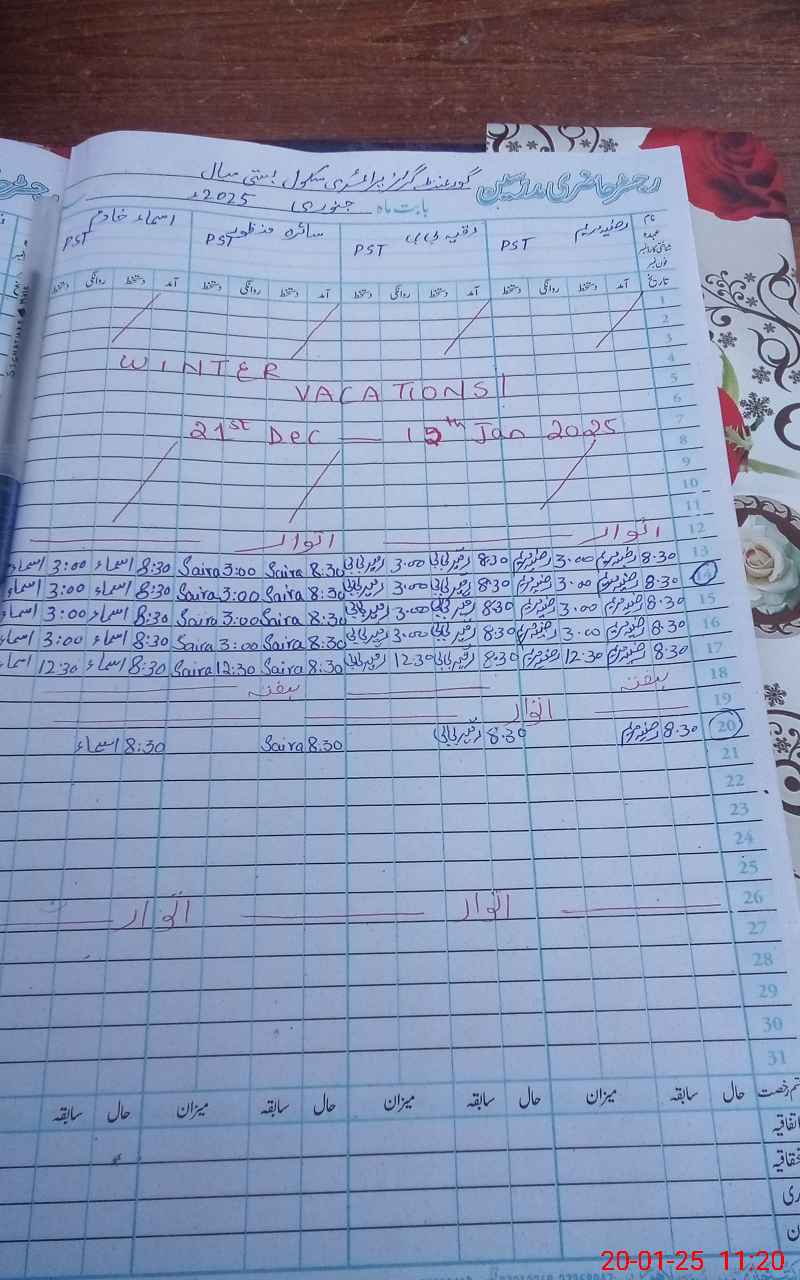 رجسٹر حاضری مدرسین گورنمنٹ گرلز پرائمری سکول بستی سیال
بابت ماہ جنوری 2025ء
نام رضیہ مریم رقیہ بی بی سائرہ منظور اسماء خادم
عہدہ PST PST PST PST
تاریخ آمد دستخط روانگی دستخط آمد دستخط روانگی دستخط آمد دستخط روانگی دستخط آمد دستخط روانگی دستخط
1
2
3
4
WINTER
5
VACATIONS!
6
7
21st Dec — 12th Jan 2025
8
9
10
11
12 اتوار اتوار
13 8.30 رضیہ مریم 3.00 رضیہ مریم 8.30 رقیہ بی بی 3.00 رقیہ بی بی 8.30 Saira 3:00 Saira 8:30 اسماء 3:00 اسماء
14 8.30 رضیہ مریم 3.00 رضیہ مریم 8.30 رقیہ بی بی 3.00 رقیہ بی بی 8.30 Saira 3:00 Saira 8:30 اسماء 3:00 اسماء
15 8.30 رضیہ مریم 3.00 رضیہ مریم 8.30 رقیہ بی بی 3.00 رقیہ بی بی 8.30 Saira 3:00 Saira 8:30 اسماء 3:00 اسماء
16 8.30 رضیہ مریم 3.00 رضیہ مریم 8.30 رقیہ بی بی 3.00 رقیہ بی بی 8.30 Saira 3:00 Saira 8:30 اسماء 3:00 اسماء
17 8.30 رضیہ مریم 12.30 رضیہ مریم 8.30 رقیہ بی بی 12.30 رقیہ بی بی 8.30 Saira 12:30 Saira 8:30 اسماء 12:30 اسماء
18 ہفتہ ہفتہ
19 اتوار
20 8.30 رضیہ مریم 8.30 رقیہ بی بی 8.30 Saira 8:30 اسماء
21
22
23
24
25
26 اتوار اتوار
27
28
29
30
31
قسم رخصت حال سابقہ میزان حال سابقہ میزان حال سابقہ میزان حال سابقہ
اتفاقیہ
20-01-25 11:20